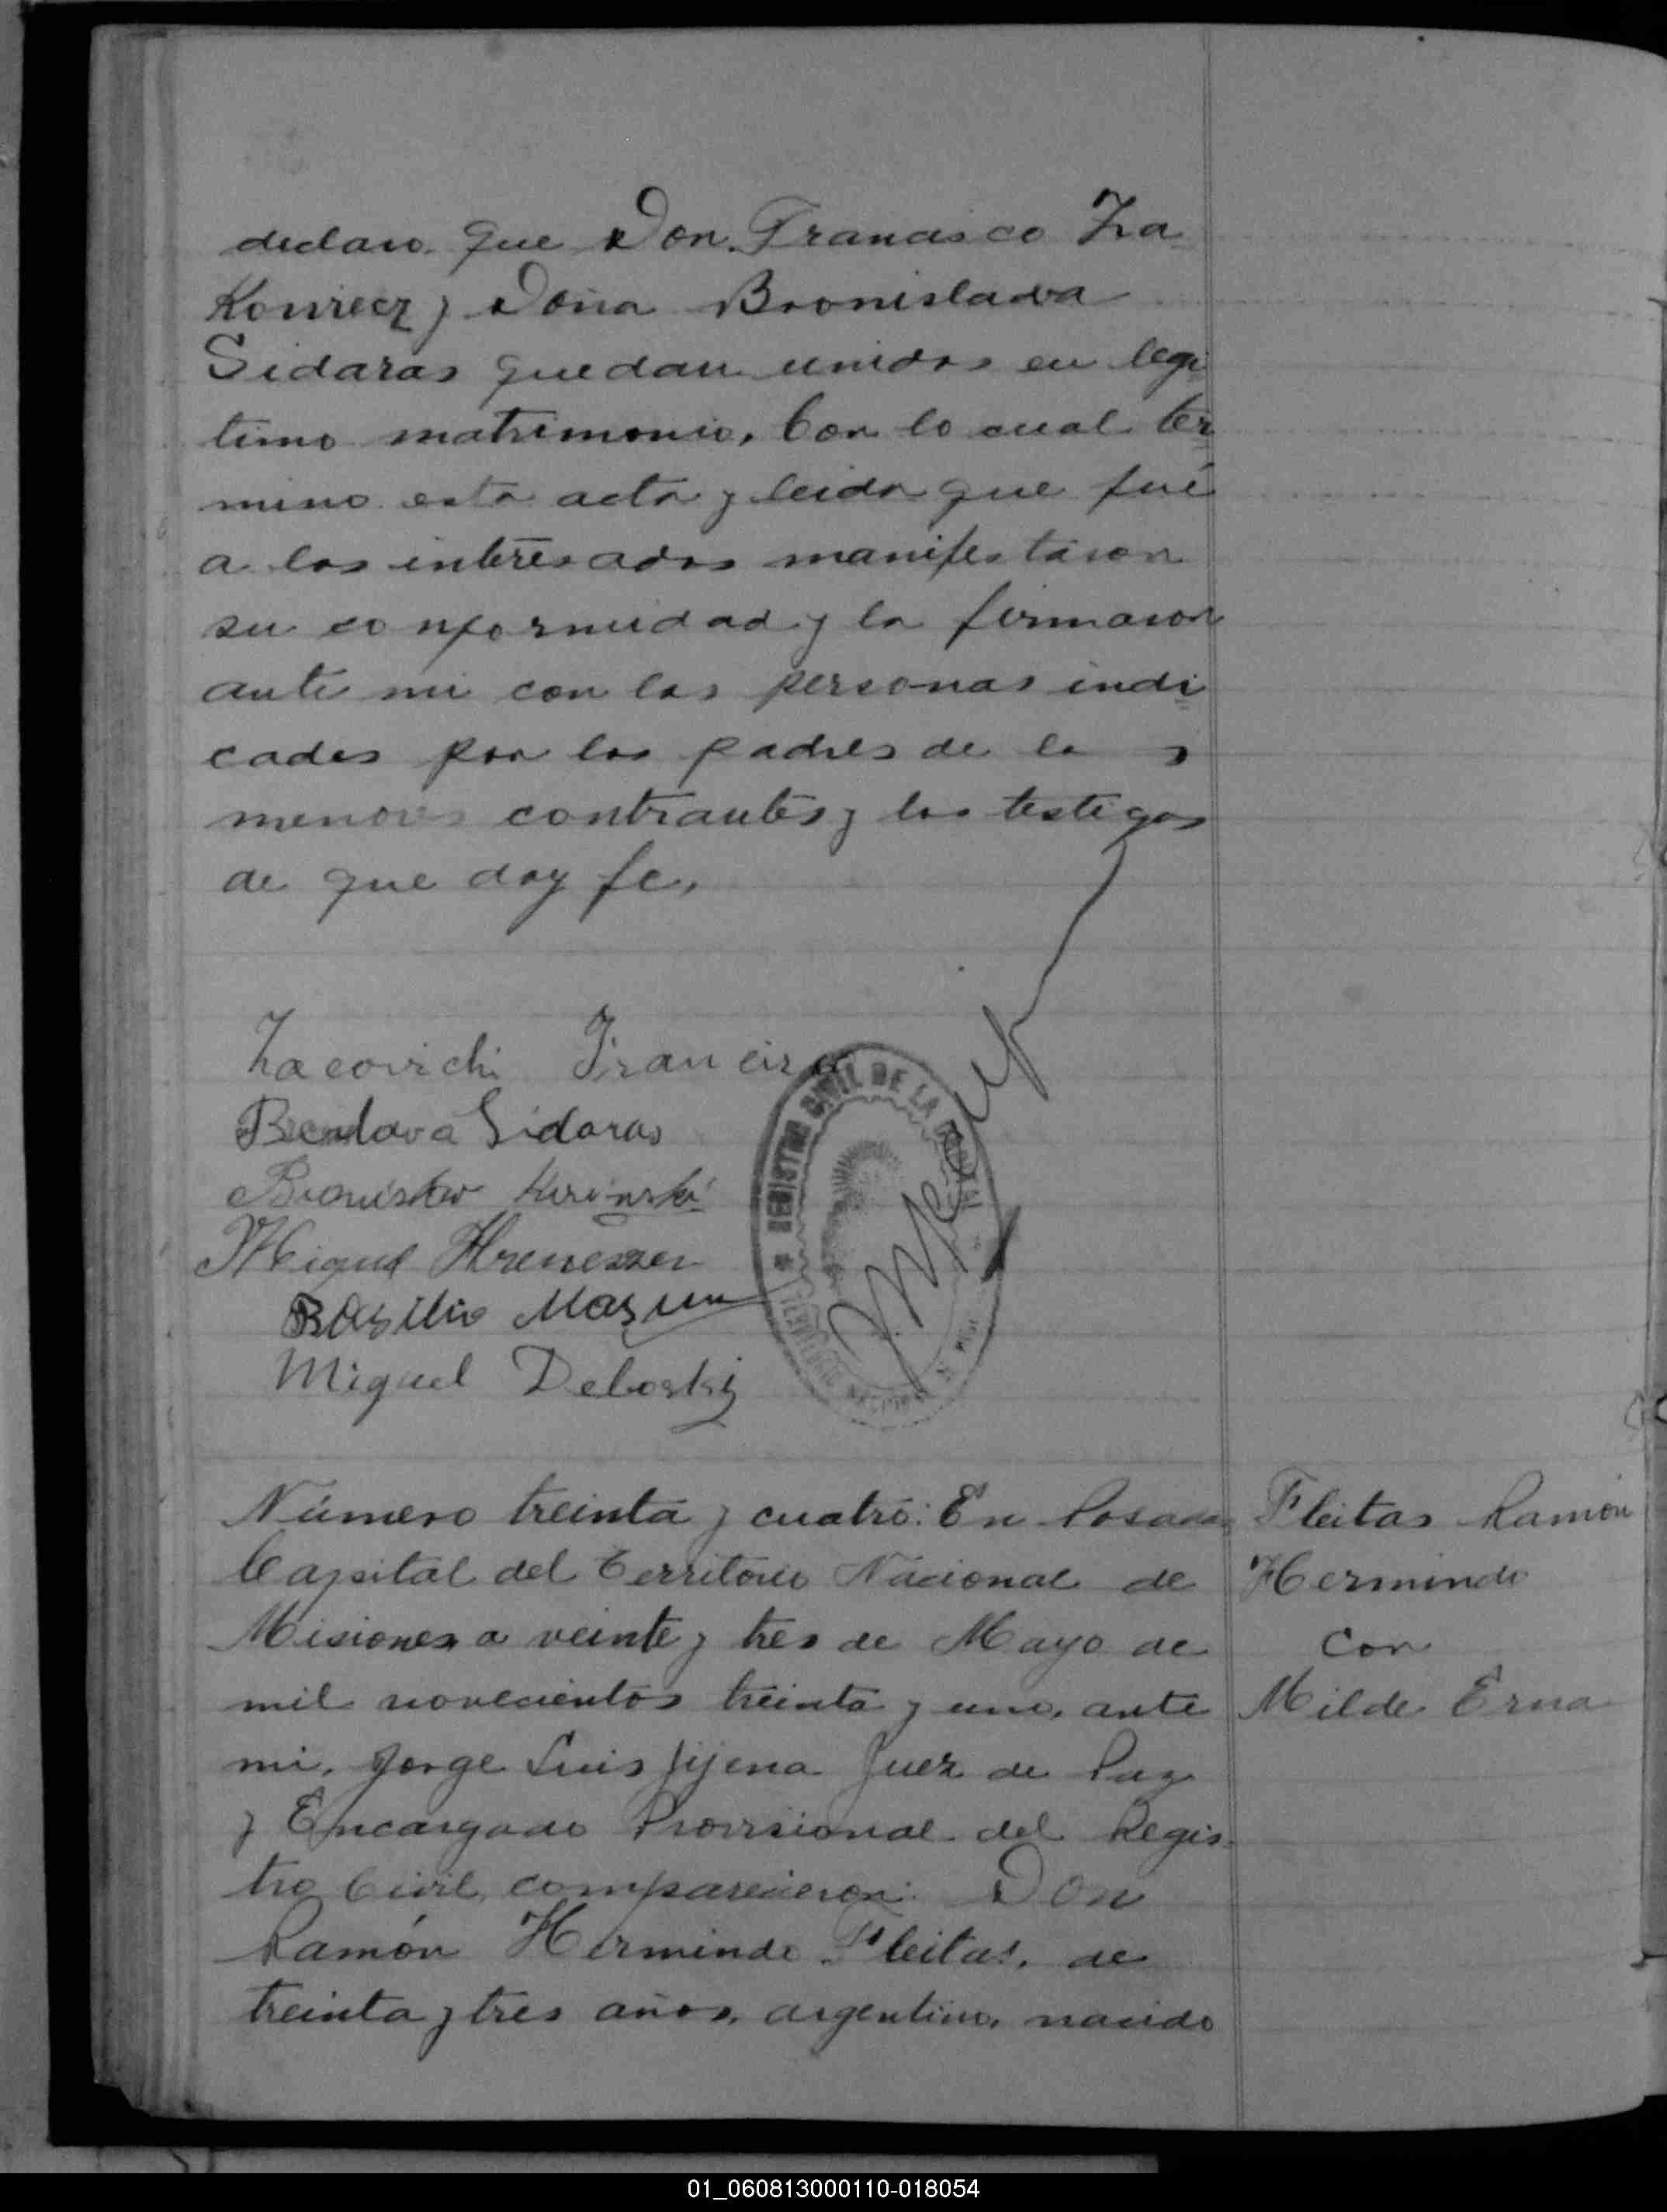 declaro que Don Francisco Za
Koniecz y Doña Bronislava
Sidaras quedan unidos en legi
timo matrimonio. Con lo cual ter
mino esta acta y leida que fué
a los interesados manifestaron
su conformidad y la firmaron
ante mi con las personas indi
cadas por los padres de lo s
menores contrantes y los testigos
de que doy fe.
Zacovichi Francisco
Sidaras
Miguel
Basilio
Miguel Deboski
REGISTRO CIVIL DE LA
Número treinta y cuatro: En Posadas
Capital del Territorio Nacional de
Misiones a veinte y tres de Mayo de
mil novecientos treinta y uno, ante
mi, Jorge Luis Jijena Juez de Paz
y Encargado Provisional del Regis
tro Civil, comparecieron: Don
Ramón Hermindo Fleitas, de
treinta y tres años, argentino, nacido
Fleitas Ramón
Hermindo
con
Milde Erna
01_060813000110-018054